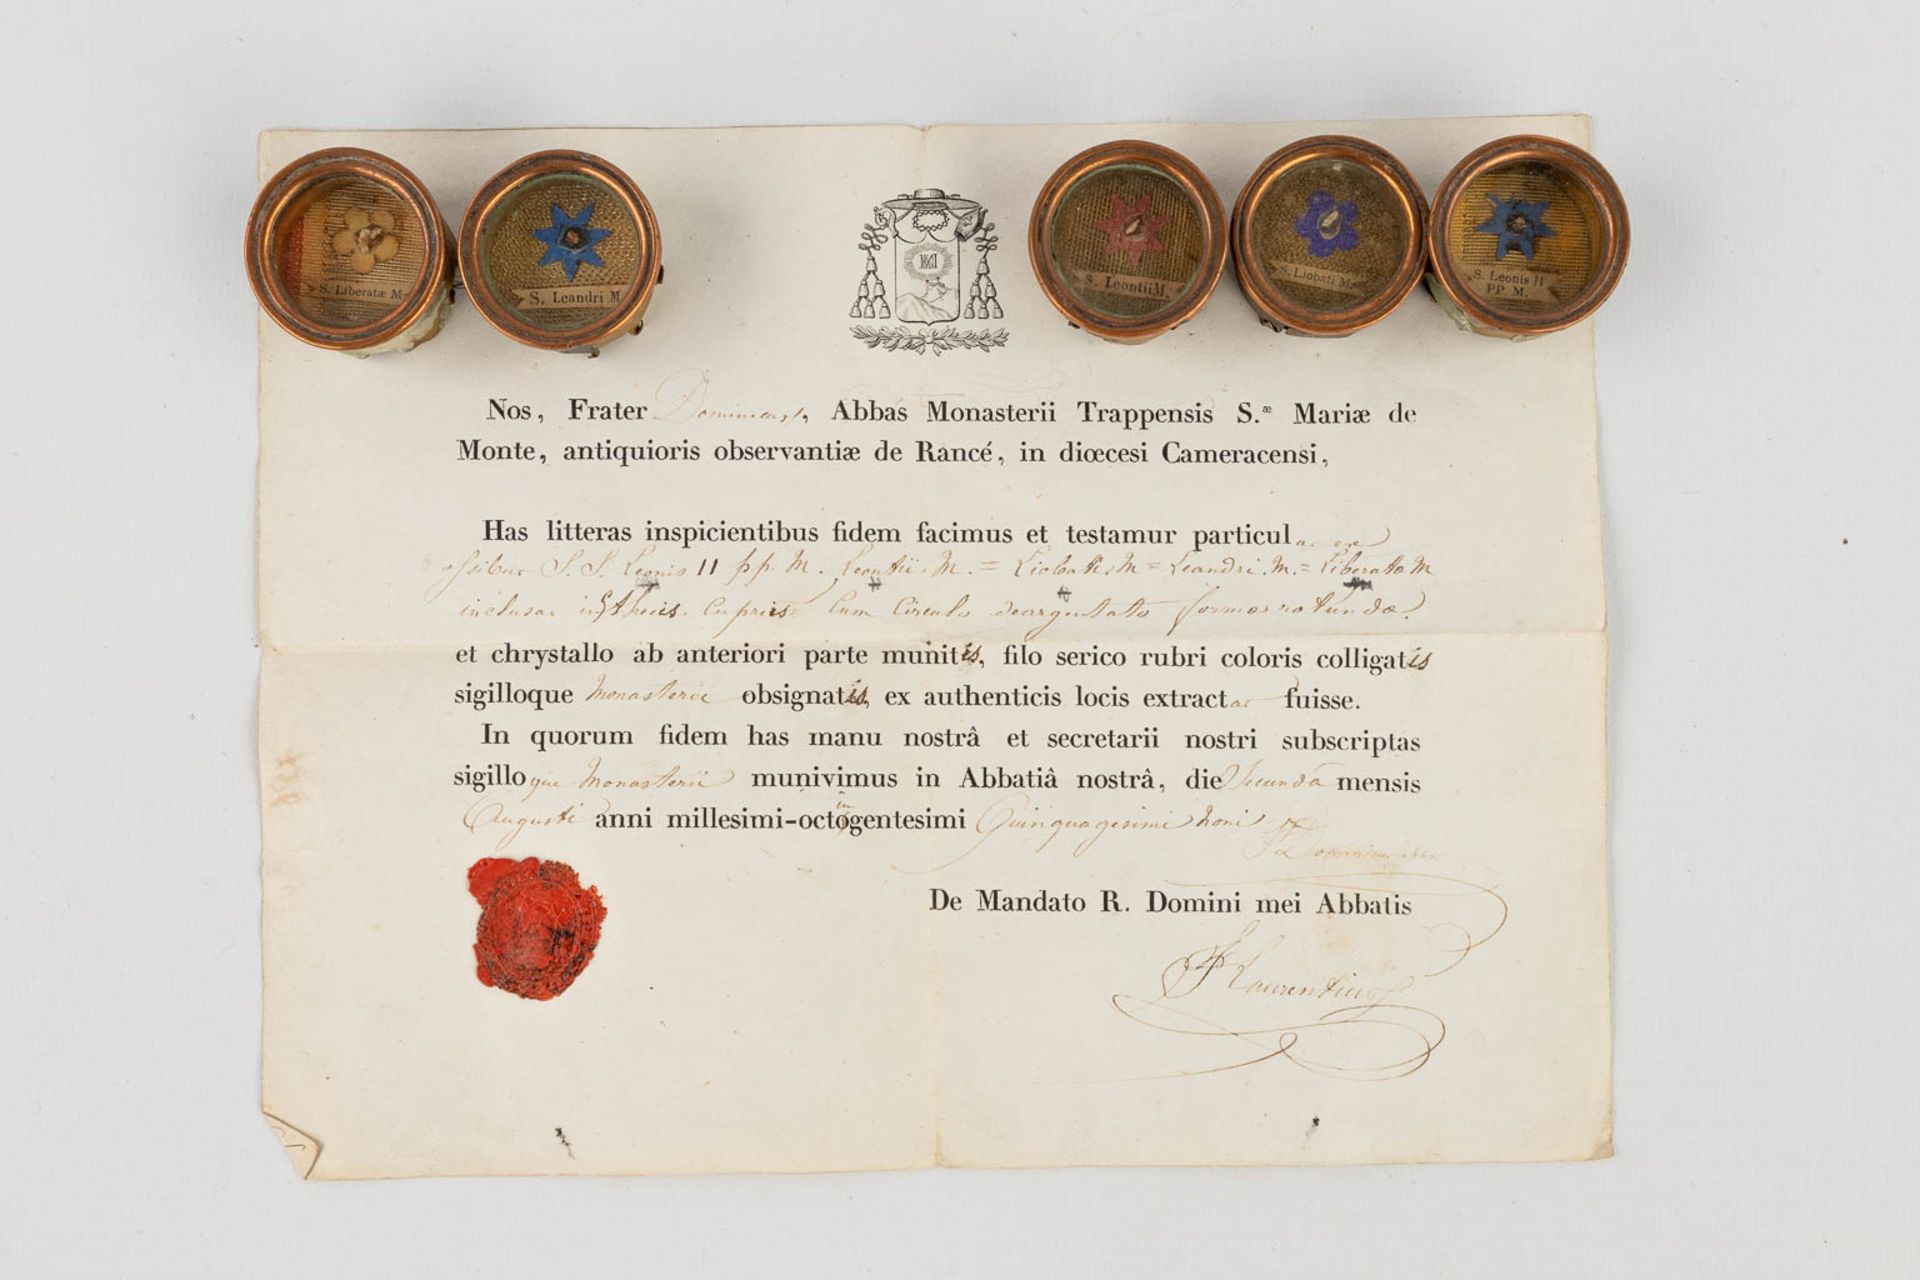 S. Liberatæ M
S. Leandri M
S. Leontii M.
S. Liobati M.
S. Leonis II
PP. M.
Nos, Frater Dominicus, Abbas Monasterii Trappensis S.æ Mariæ de
Monte, antiquioris observantiæ de Rancé, in diœcesi Cameracensi,
Has litteras inspicientibus fidem facimus et testamur particulas ex
ossibus S. S. Leonis II pp. M. Leontii. M. = Liobati. M = Leandri. M. = Liberatæ M
inclusas in thecis cupreis cum circulo deargentato formæ rotundæ
et chrystallo ab anteriori parte munitis, filo serico rubri coloris colligatis
sigilloque Monasterii obsignatis, ex authenticis locis extractas fuisse.
In quorum fidem has manu nostrâ et secretarii nostri subscriptas
sigilloque Monasterii munivimus in Abbatiâ nostrâ, die Secundâ mensis
Augusti anni millesimi-octogentesimi Quinquagesimi noni
f. Dominicus
De Mandato R. Domini mei Abbatis
f. Laurentius